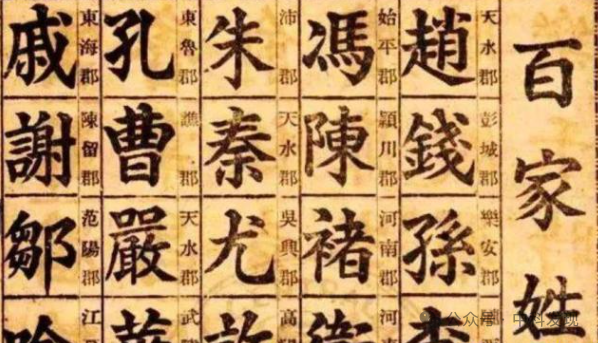 百家姓
天水郡 彭城郡 樂安郡
趙錢孫
始平郡 穎川郡 河南郡
馮陳褚
沛郡 天水郡 吳興郡 高
朱秦尤
東魯郡 譙郡 天水郡 武
孔曹嚴
東海郡 陳留郡 范陽郡 江
戚謝鄒
公众号 · 中科发现